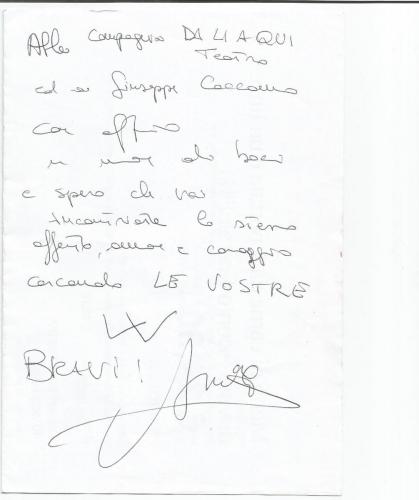 Alla Compagnia DALIAQUI
Teatro
ed a Giuseppe Caccamo
con affetto
e spero che voi
incontriate lo stesso
affetto, amore e coraggio
cercando LE VOSTRE
W
BRAVI!